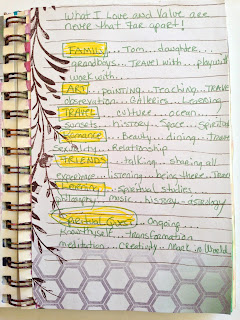 What I Love and Value are
never that Far apart!
FAMILY... Tom... daughter...
grandboys... Travel with, play with
work with...
ART... painting... Teaching... TRAVEL
observation... Galleries... Learning
TRAVEL... culture... ocean...
sunsets... history... Space... Spiritual
Romance... Beauty... dining... Travel
Sexuality... Relationship
FRIENDS... talking... sharing all
experience... listening... being there...
Learning... Spiritual studies...
philosophy... music... history... astrology
Spiritual Quest... Ongoing...
Knowthyself... transformation
meditation... Creativity... in World